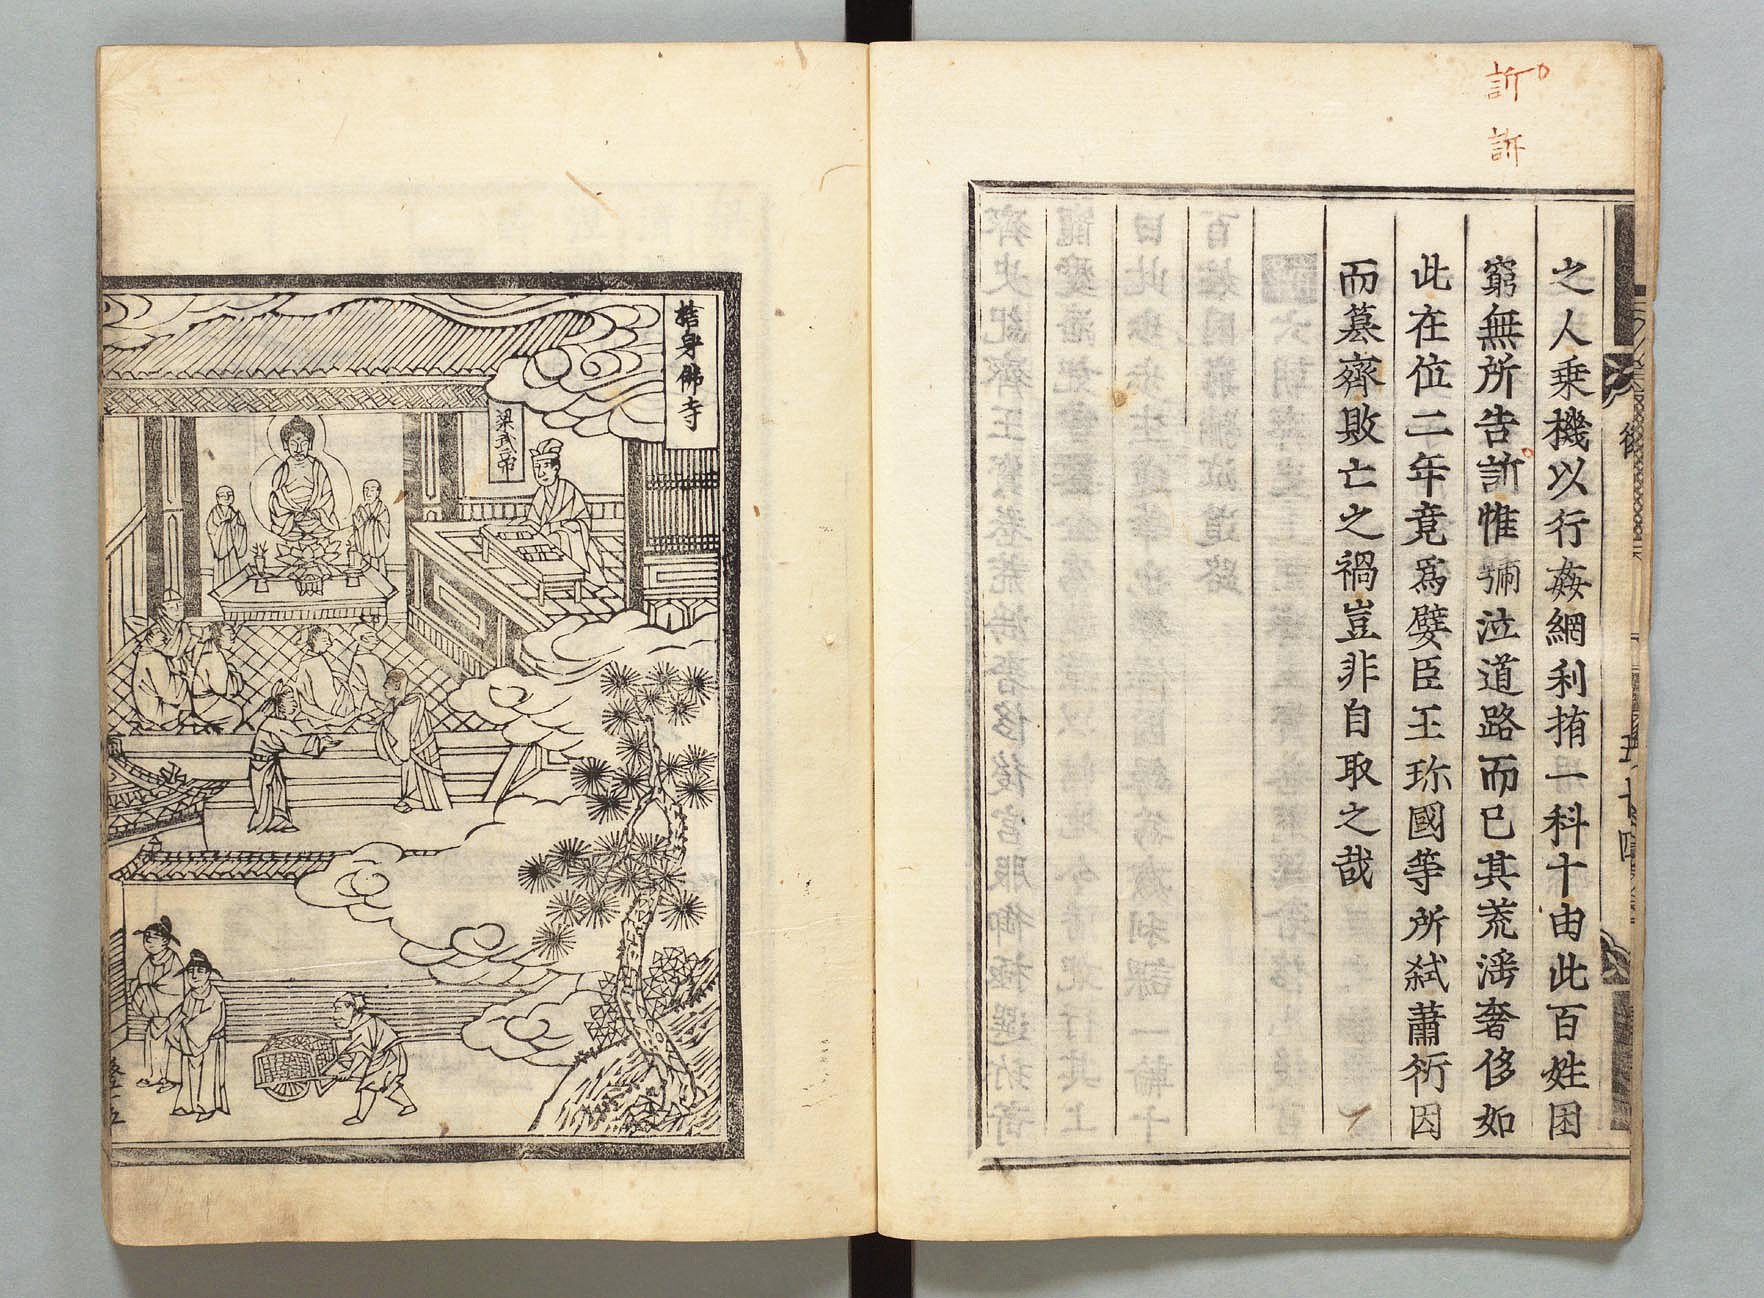 訢
訴
之人乗機以行姦網利挏一科十由此百姓困
窮無所告訢惟號泣道路而已其荒淫奢侈如
此在位二年竟爲嬖臣王珎國等所弑蕭衍因
而簒齊敗亡之禍豈非自取之哉
捨身佛寺
梁武帝